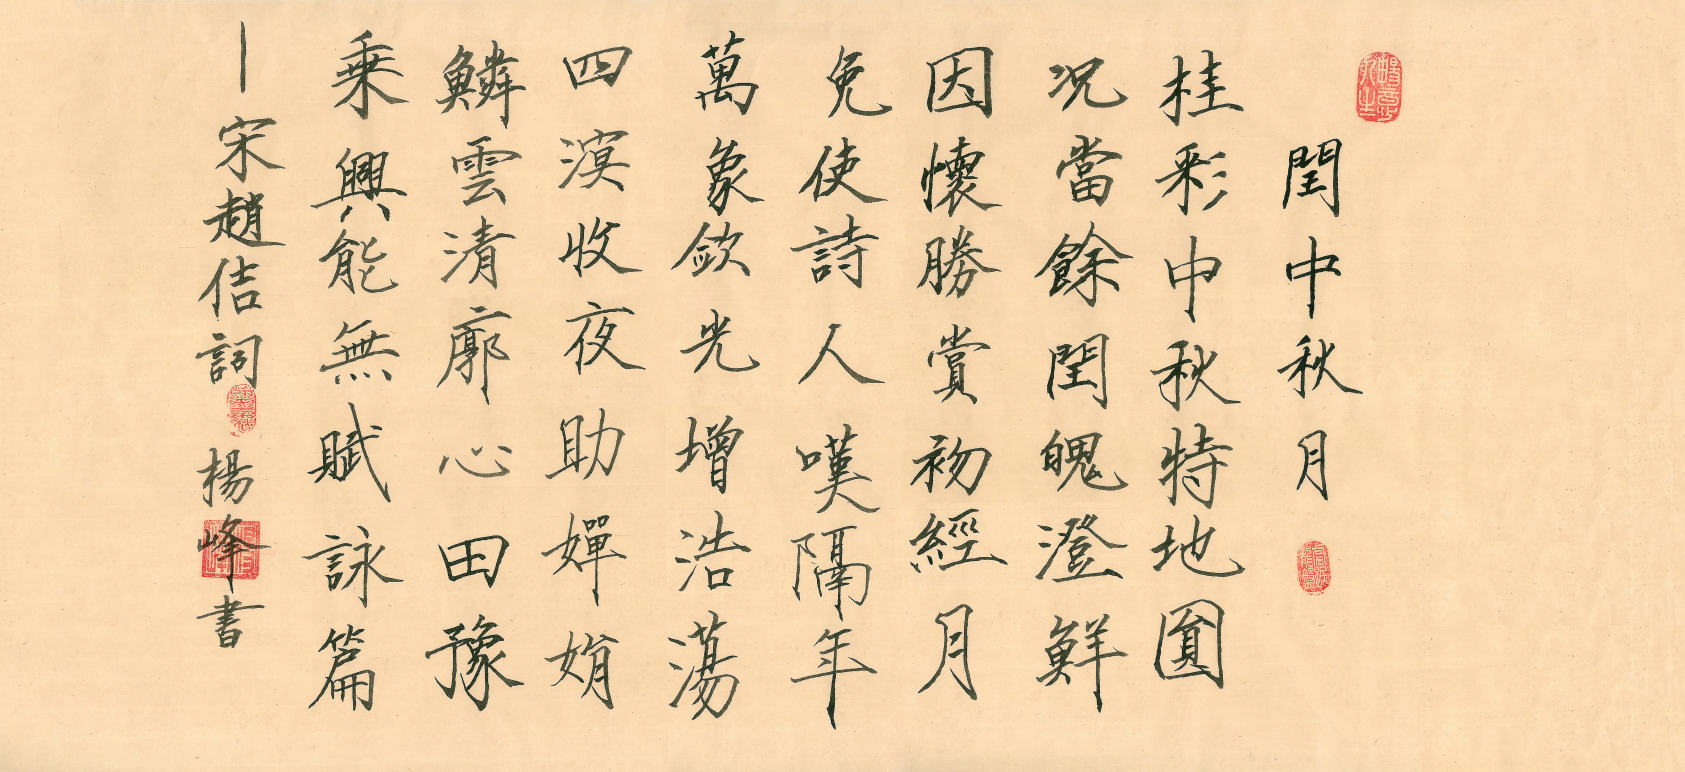 閏中秋月
桂彩中秋特地圓
况當餘閏魄澄鮮
因懷勝賞初經月
免使詩人嘆隔年
萬象斂光增浩蕩
四溟收夜助嬋娟
鱗雲清廓心田豫
乘興能無賦詠篇
—宋趙佶詞 楊峰書